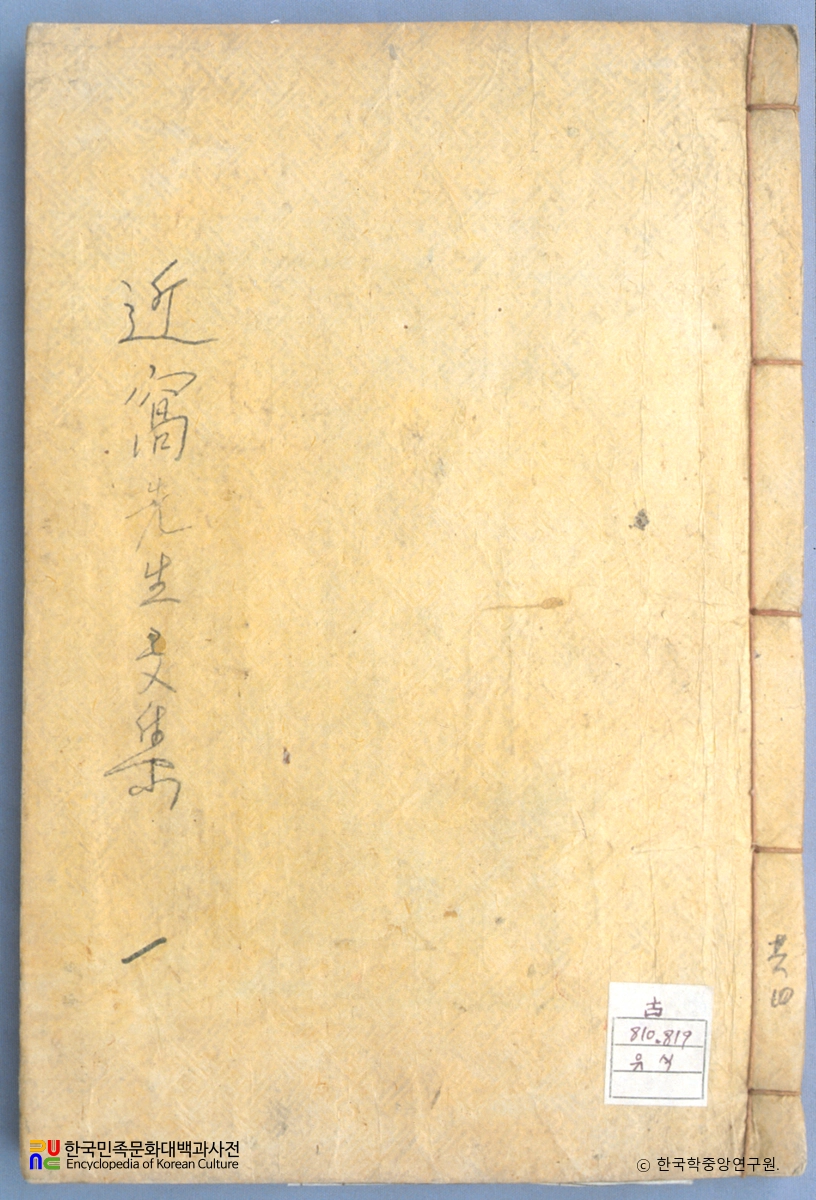 近窩先生文集
一
共四
古
810.819
유 식
한국민족문화대백과사전
Encyclopedia of Korean Culture
© 한국학중앙연구원.